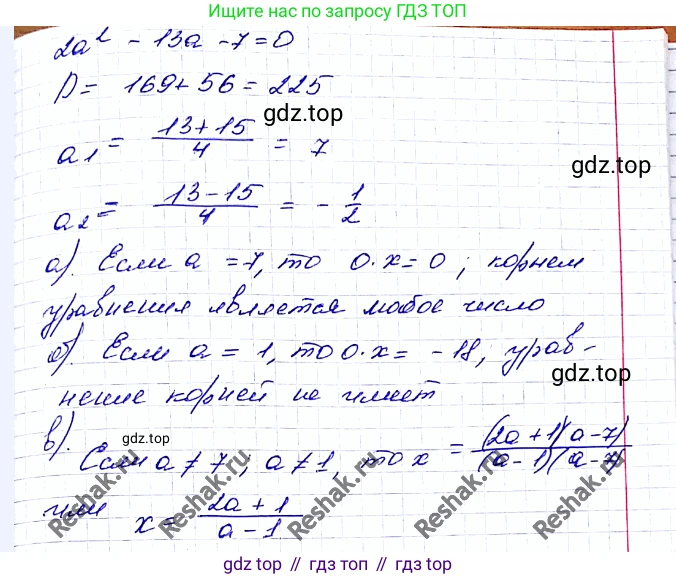 Ищите ГДЗ по запросу ГДЗ ТОП
2a² - 13a - 7 = 0
D = 169 + 56 = 225
gdz.top
a₁ = (13 + 15)/4 = 7
gdz.top
a₂ = (13 - 15)/4 = - 1/2
а). Если a = 7, то 0·x = 0 ; корнем
уравнения является любое число
б). Если a = 1, то 0·x = - 18; урав-
gdz.top
нение корней не имеет
gdz.top
в). Если a ≠ 7 ; a ≠ 1, то x = (2a + 1)(a - 7)/(a - 1)(a - 7)
или x = (2a + 1)/(a - 1)
Reshak.ru
Reshak.ru
Reshak.ru
Reshak.ru
Reshak.ru
гдз топ // гдз топ // гдз топ